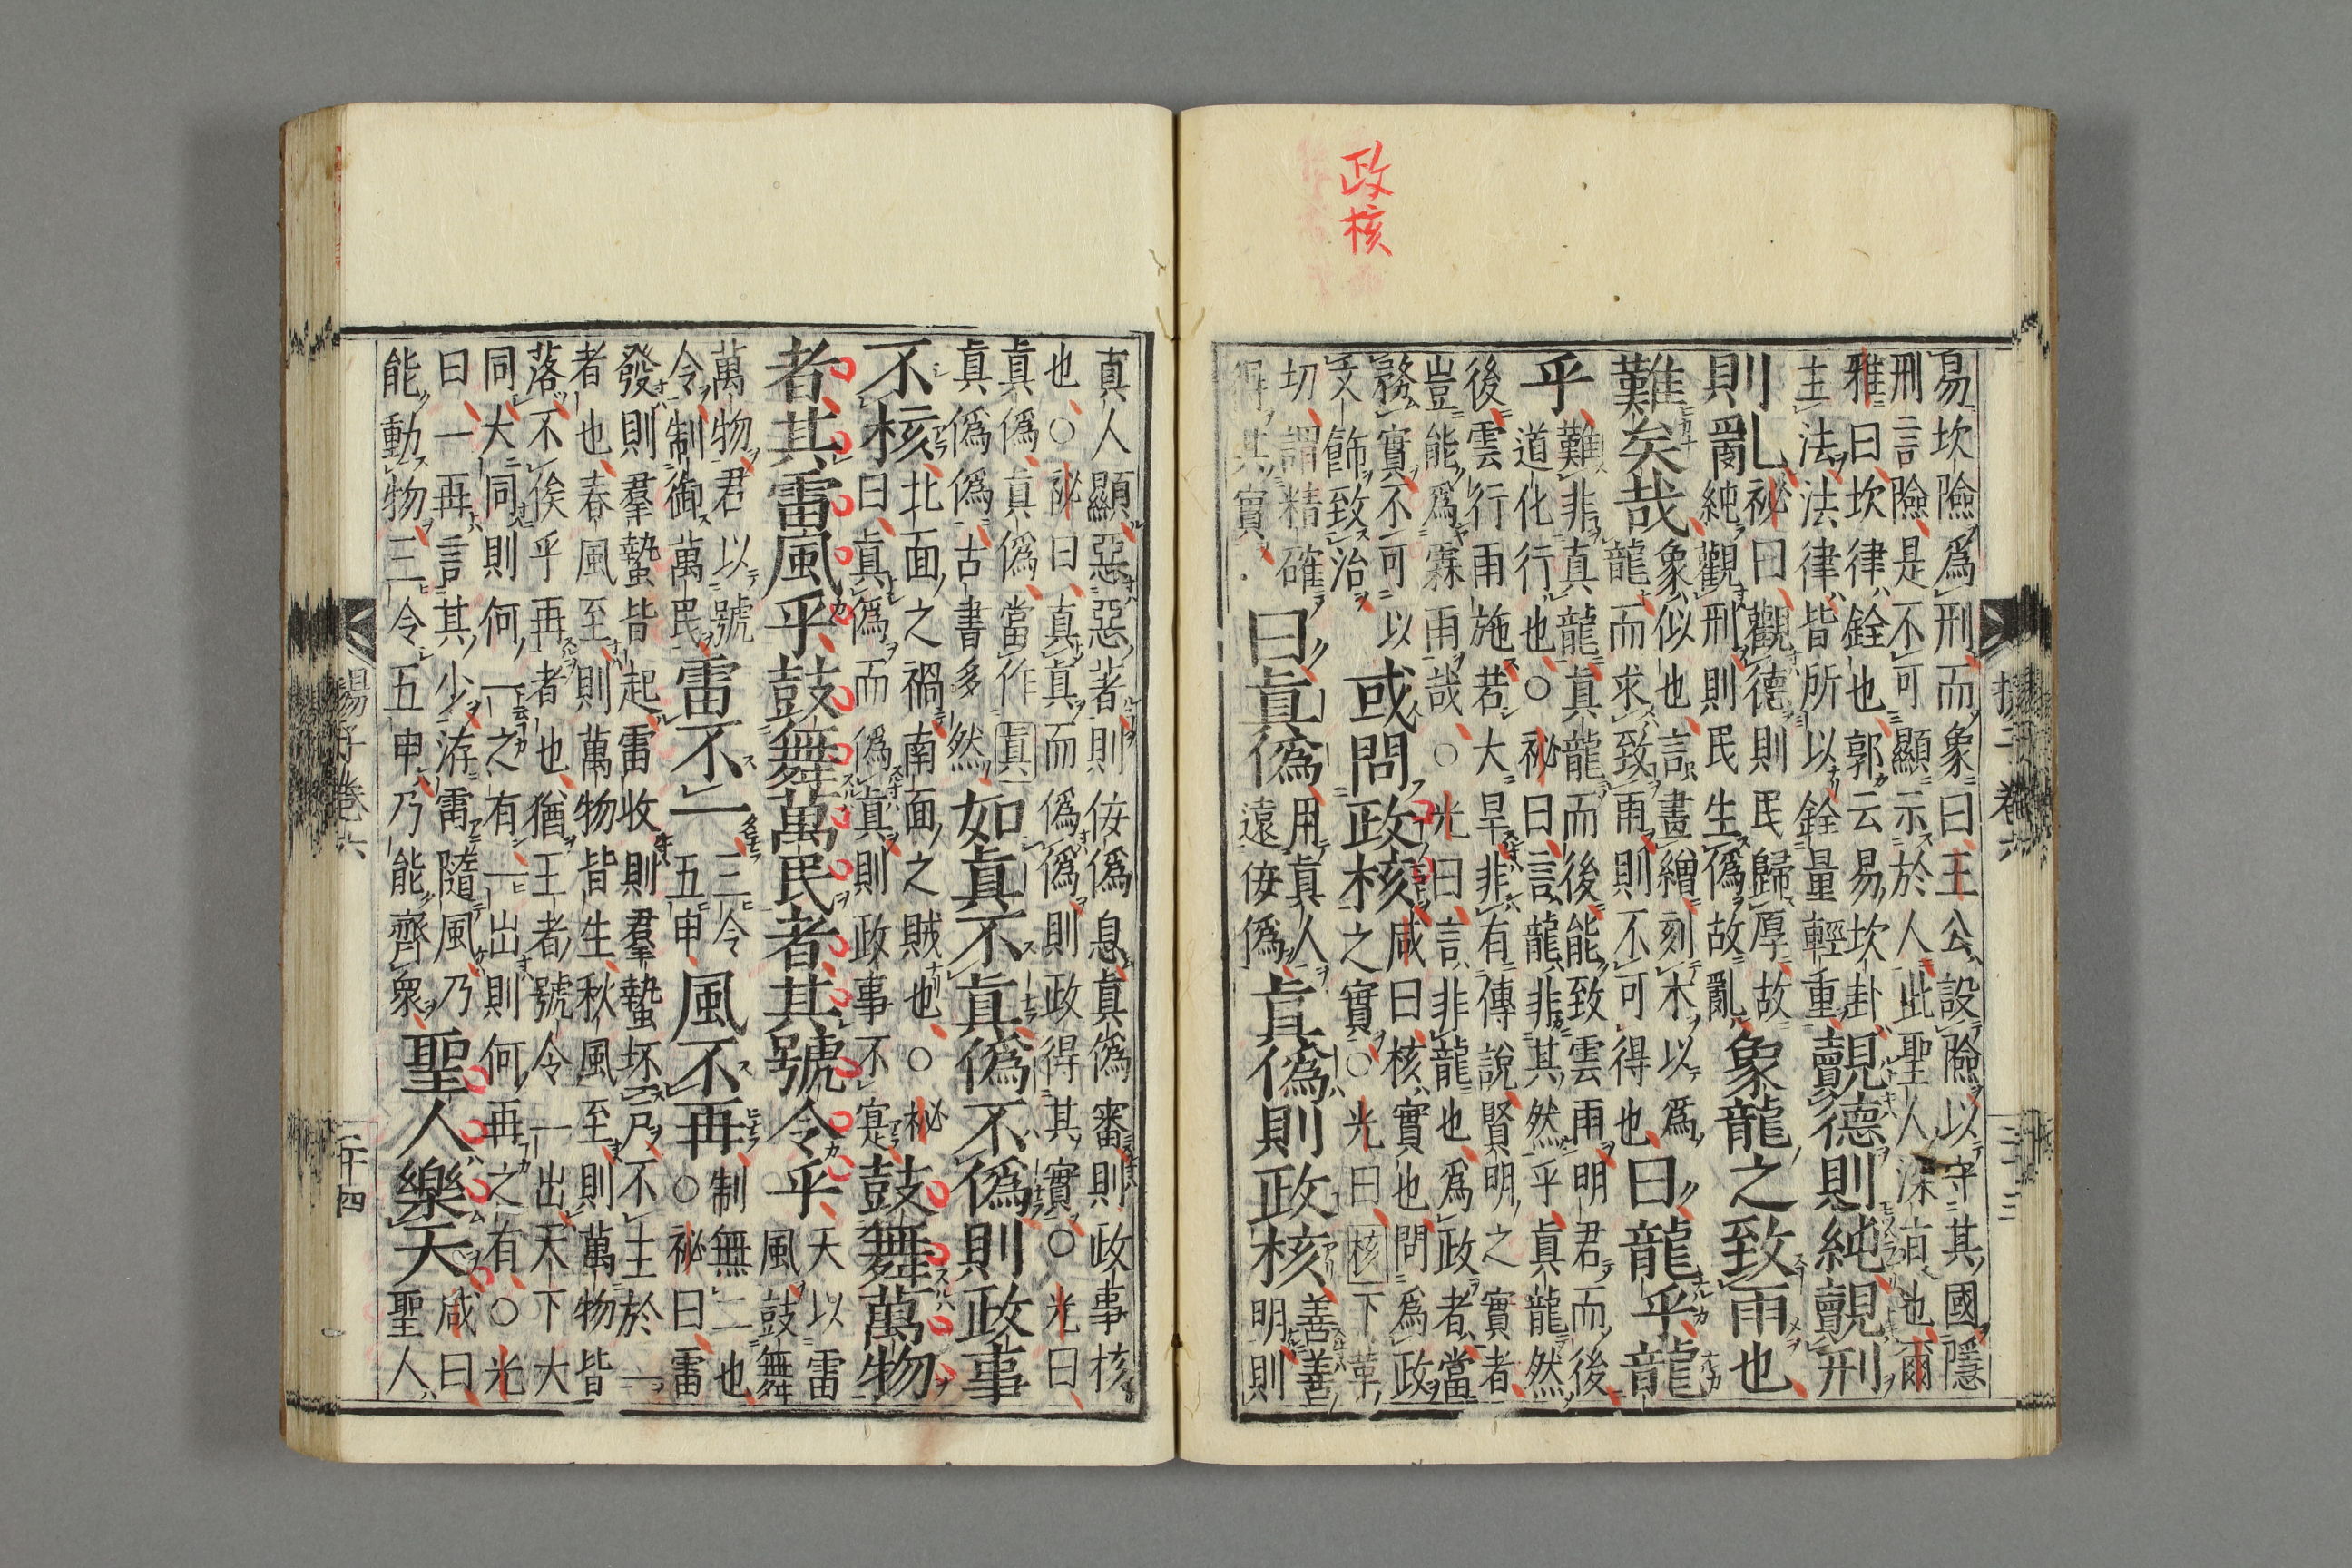 政核
易坎險爲刑而象曰王公設險以守其國隱
刑言險是不可顯示於人此聖人深㫖也爾
雅曰坎律銓也郭云易坎卦
主法法律皆所以銓量輕重
覿德則純覿刑
則亂
祕曰觀德則民歸厚故
純觀刑則民生僞故亂
象龍之致雨也
難矣哉
象似也言畫繒刻木以爲
龍而求致雨則不可得也
曰龍乎龍
乎
難非真龍真龍而後能致雲雨明君而後
道化行也○祕曰言龍非其然乎真龍然
後雲行雨施若大旱非有傳說賢明之實者
豈能爲霖雨哉○光曰言非龍也爲政者當
務實不可以
文飾致治
或問政核
咸曰核實也問爲政
之實○光曰核下革
切謂精確
得其實
曰真僞
用真人
遠佞僞
真僞則政核
善善
明則
揚子卷六 二十三
真人顯惡惡著則佞僞息真僞審則政事核
也○祕曰真真而僞僞則政得其實○光曰
真僞真僞當作真
真僞僞古書多然
如真不真僞不僞則政事
不核
北面之禍南面之賊也○祕
曰真僞而僞真則政事不寔
鼓舞萬物
者其雷風乎鼓舞萬民者其號令乎
天以雷
風鼓舞
萬物君以號
令制御萬民
雷不一
三令
五申
風不再
制無二也
○祕曰雷
發則羣蟄皆起雷收則羣蟄坏戸不主於一
者也春風至則萬物皆生秋風至則萬物皆
落不俟乎再者也猶王者號令一出天下大
同大同則何一之有一出則何再之有○光
曰一再言其少洊雷隨風乃
能動物三令五申乃能齊衆
聖人樂天
咸曰
聖人
揚子卷六 二十四